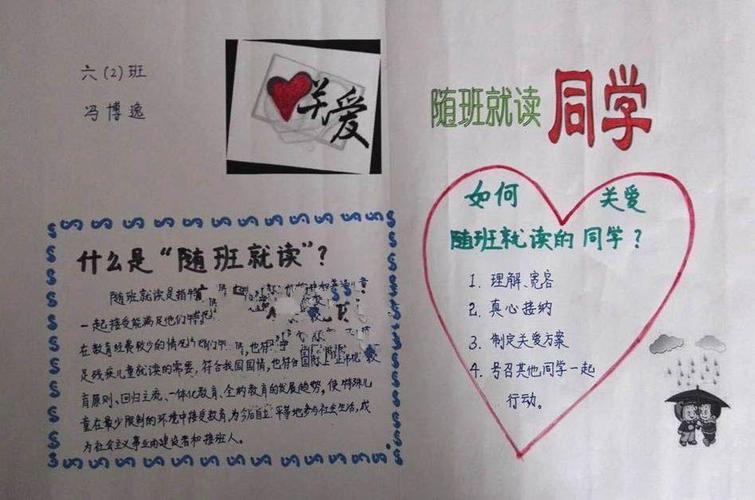 六(2)班
冯博逸
关爱
随班就读 同学
什么是“随班就读”？
随班就读是指
一起接受能满足他们
在教育经费较少的情况
足残疾儿童就读的需要，符合我国国情，也符合国际上
育原则、回归主流、一体化教育、全纳教育的发展趋势，使特殊儿
童在最少限制的环境中接受教育，为今后自立、平等地参与社会生活，成
为社会主义事业的建设者和接班人。
如何 关爱
随班就读的同学？
1. 理解、宽容
2. 真心接纳
3. 制定关爱方案
4. 号召其他同学一起
行动。